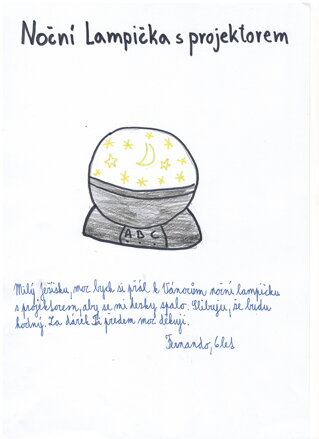 Noční Lampička s projektorem
A B C
Milý Ježíšku, moc bych si přál k Vánocům noční lampičku
s projektorem, aby se mi hezky spalo. Slibuju, že budu
hodný. Za dárek Ti předem moc děkuji.
Fernando, 6 let